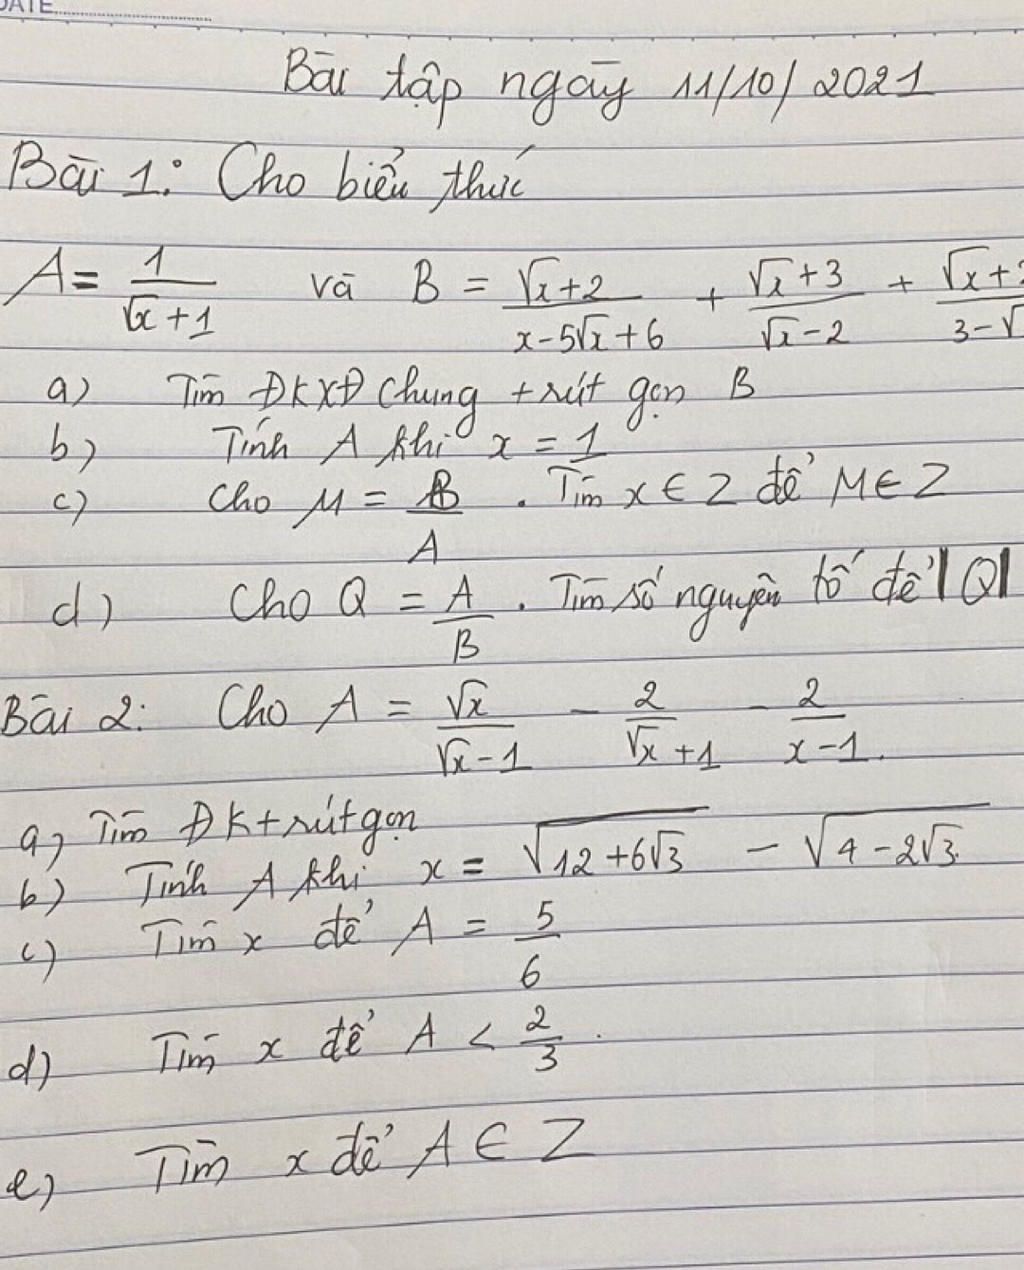 DATE
Bài tập ngày 11/10/2021
Bài 1: Cho biểu thức
A = 1/(√x + 1) và B = (√x + 2)/(x - 5√x + 6) + (√x + 3)/(√x - 2) + (√x +)/(3 - √)
a) Tìm ĐKXĐ chung + rút gọn B
b) Tính A khi x = 1
c) Cho M = B/A . Tìm x ∈ Z để M ∈ Z
d) Cho Q = A/B . Tìm số nguyên tố để |Q|
Bài 2: Cho A = √x/(√x - 1) - 2/(√x + 1) - 2/(x - 1).
a) Tìm ĐK + rút gọn
b) Tính A khi x = √(12 + 6√3) - √(4 - 2√3)
c) Tìm x để A = 5/6
d) Tìm x để A < 2/3.
e) Tìm x để A ∈ Z